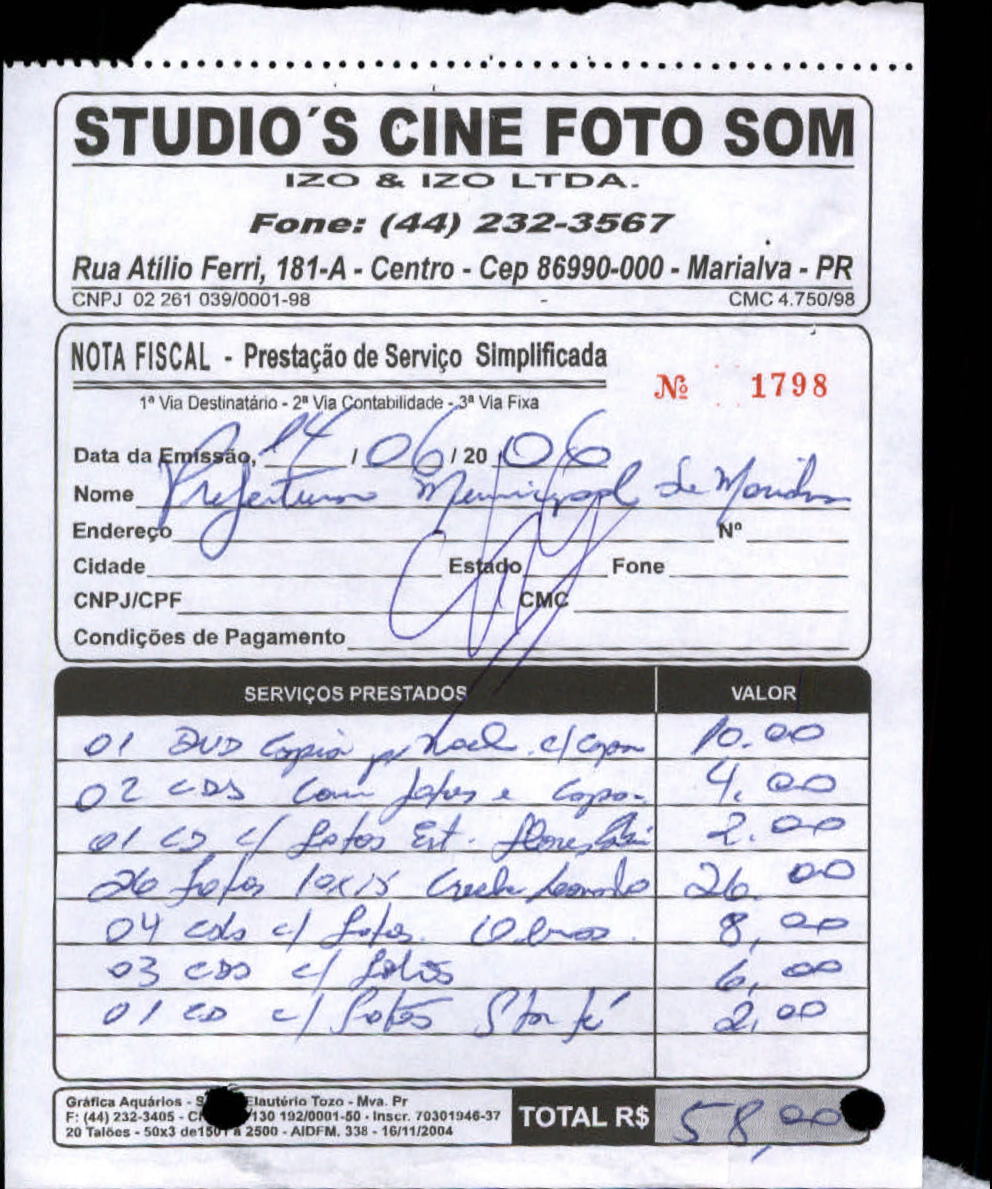 STUDIO´S CINE FOTO SOM
IZO & IZO LTDA.
Fone: (44) 232-3567
Rua Atílio Ferri, 181-A - Centro - Cep 86990-000 - Marialva - PR
CNPJ 02 261 039/0001-98 - CMC 4.750/98
NOTA FISCAL - Prestação de Serviço Simplificada
Nº 1798
1ª Via Destinatário - 2ª Via Contabilidade - 3ª Via Fixa
Data da Emissão, 14 / 06 / 20 06
Nome Prefeitura Municipal de
Endereço Nº
Cidade Estado Fone
CNPJ/CPF CMC
Condições de Pagamento
SERVIÇOS PRESTADOS VALOR
01 DVD Copia c/ capa 10.00
02 CDS com fotos e capa. 4,00
01 CD c/ fotos Est. 2.00
26 fotos 10x15 Creche 26.00
04 cds c/ fotos. 8,00
03 CDS c/ fotos 6,00
01 CD c/ fotos Sta fé 2,00
Gráfica Aquários - Elautério Tozo - Mva. Pr
F: (44) 232-3405 - 130 192/0001-50 - Inscr. 70301946-37
20 Talões - 50x3 de 1501 a 2500 - AIDFM. 338 - 16/11/2004
TOTAL R$ 58,00